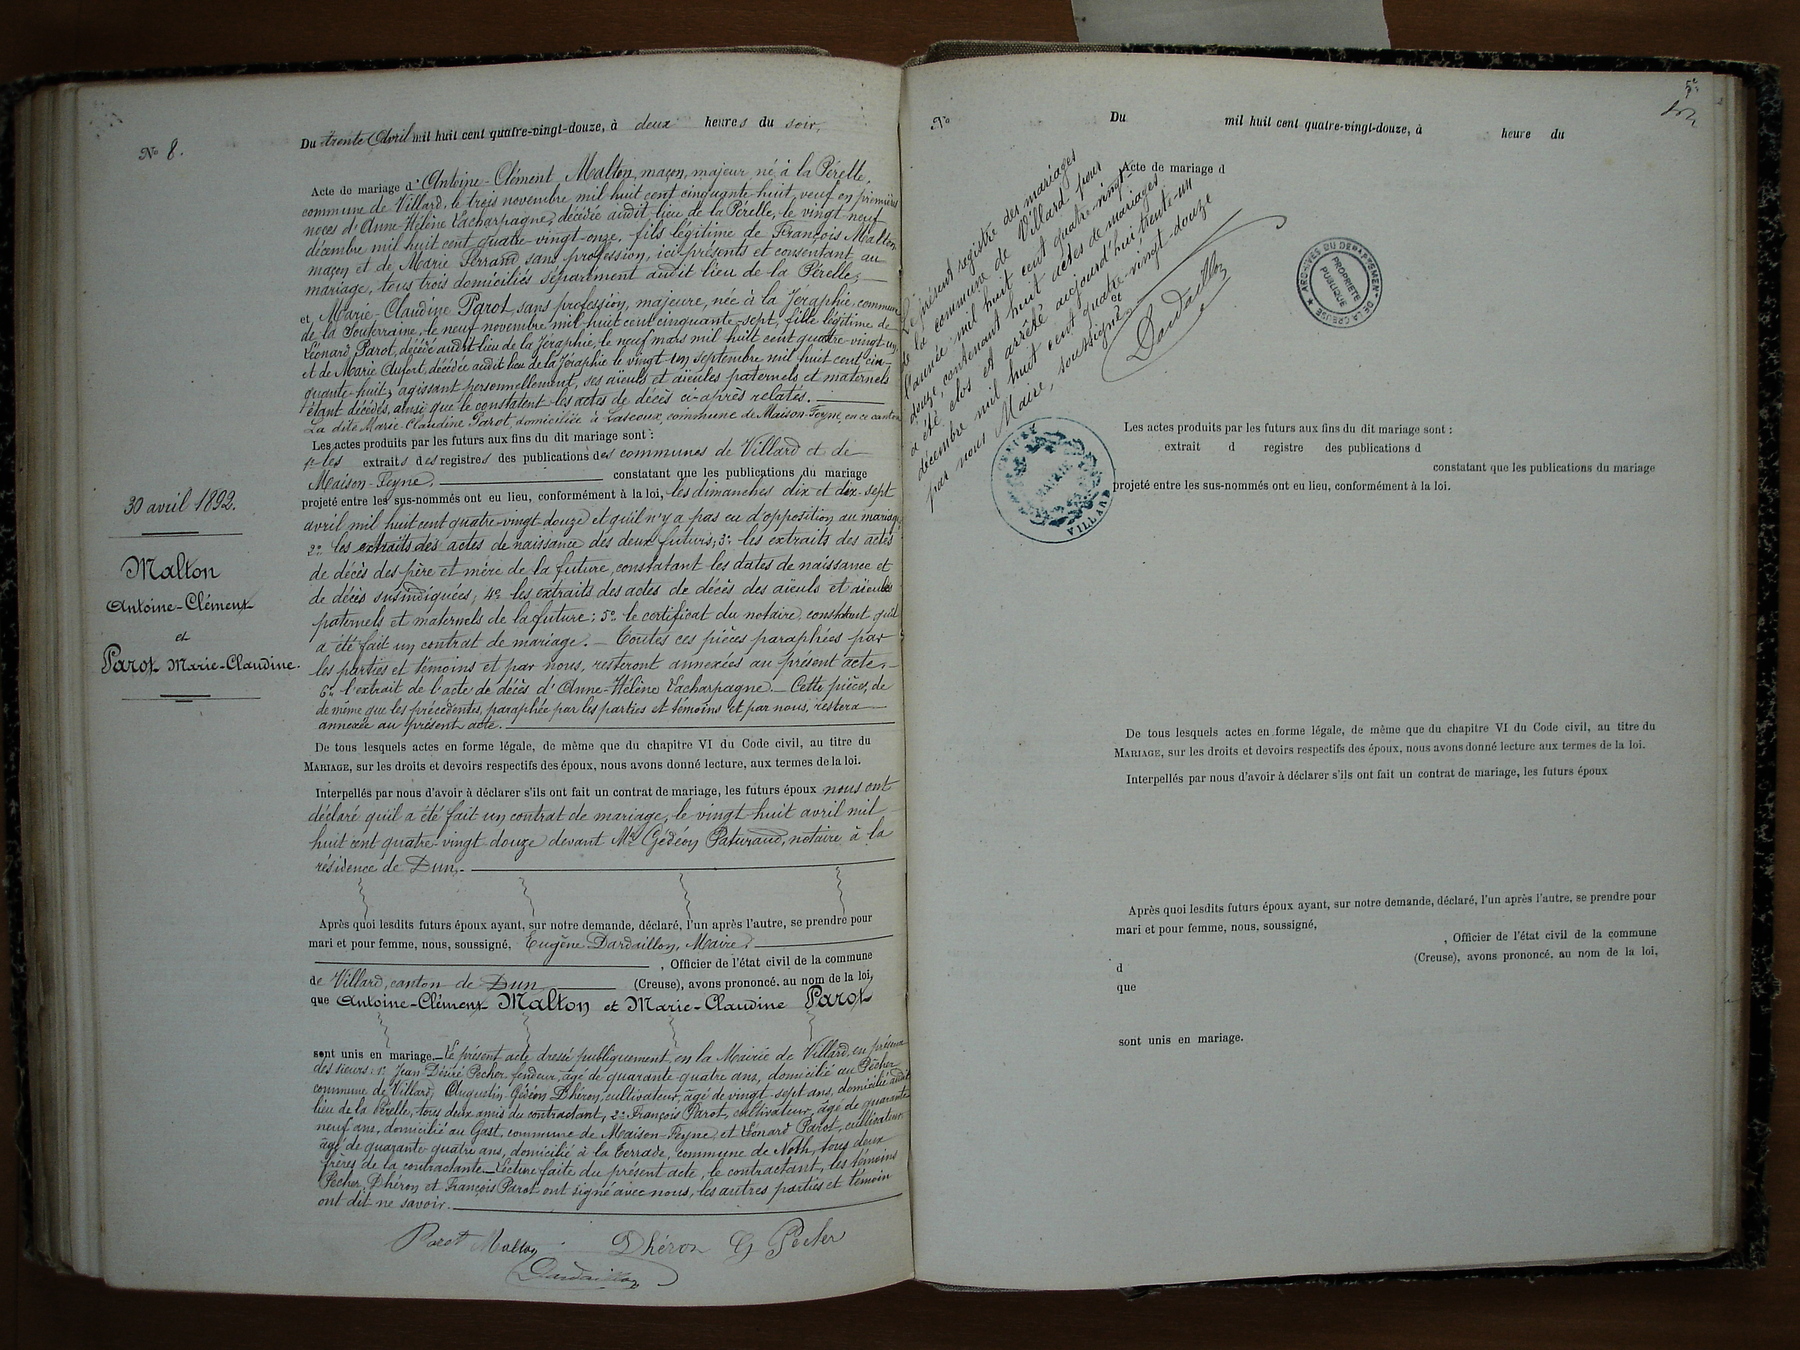 Nº 8.
Du trente Avril mil huit cent quatre-vingt-douze, à deux heures du soir,
Acte de mariage d'Antoine-Clément Malton, maçon, majeur, né à la Pérelle,
commune de Villard, le trois novembre mil huit cent cinquante huit, veuf en premières
noces d'Anne-Hélène Lacharpagne, décédée audit lieu de la Pérelle, le vingt neuf
décembre mil huit cent quatre-vingt-onze, fils légitime de François Malton
maçon et de Marie Ferrand sans profession, ici présents et consentant au
mariage, tous trois domiciliés séparément audit lieu de la Pérelle;
et Marie-Claudine Parot, sans profession, majeure, née à la Jéraphie, commune
de la Souterraine, le neuf novembre mil huit cent cinquante-sept, fille légitime de
Léonard Parot, décédé audit lieu de la Jéraphie, le neuf mars mil huit cent quatre-vingt-un
et de Marie Aufort, décédée audit lieu de la Jéraphie le vingt un septembre mil huit cent cin-
quante-huit; agissant personnellement, ses aïeuls et aïeules paternels et maternels
étant décédés, ainsi que le constatent les actes de décès ci-après relatés.
La dite Marie-Claudine Parot, domiciliée à Lascoux, commune de Maison-Feyne, en ce canton
Les actes produits par les futurs aux fins du dit mariage sont :
1º les extraits des registres des publications des communes de Villard et de
Maison-Feyne, constatant que les publications du mariage
projeté entre les sus-nommés ont eu lieu, conformément à la loi, les dimanches dix et dix-sept
avril mil huit cent quatre-vingt-douze et qu'il n'y a pas eu d'opposition au mariage;
2º les extraits des actes de naissance des deux futurs; 3º les extraits des actes
de décès des père et mère de la future, constatant les dates de naissance et
de décès susindiquées; 4º les extraits des actes de décès des aïeuls et aïeules
paternels et maternels de la future; 5º le certificat du notaire, constatant qu'il
a été fait un contrat de mariage. — Toutes ces pièces paraphées par
les parties et témoins et par nous, resteront annexées au présent acte.
6º l'extrait de l'acte de décès d'Anne-Hélène Lacharpagne. — Cette pièce, de
de même que les précédentes, paraphée par les parties et témoins et par nous, restera
annexée au présent acte.
30 avril 1892.
Malton
Antoine-Clément
et
Parot Marie-Claudine.
De tous lesquels actes en forme légale, de même que du chapitre VI du Code civil, au titre du
MARIAGE, sur les droits et devoirs respectifs des époux, nous avons donné lecture, aux termes de la loi.
Interpellés par nous d'avoir à déclarer s'ils ont fait un contrat de mariage, les futurs époux nous ont
déclaré qu'il a été fait un contrat de mariage, le vingt huit avril mil
huit cent quatre-vingt-douze devant Me Gédéon Paturaud, notaire à la
résidence de Dun.
Après quoi lesdits futurs époux ayant, sur notre demande, déclaré, l'un après l'autre, se prendre pour
mari et pour femme, nous, soussigné, Eugène Dardaillon, Maire
, Officier de l'état civil de la commune
de Villard, canton de Dun (Creuse), avons prononcé, au nom de la loi,
que Antoine-Clément Malton et Marie-Claudine Parot
sont unis en mariage. — Le présent acte dressé publiquement, en la Mairie de Villard, en présence
des sieurs: 1º Jean Désiré Pécher, fendeur, âgé de quarante quatre ans, domicilié au Pécher
commune de Villard, Augustin-Gédéon Dhéron, cultivateur, âgé de vingt-sept ans, domicilié audit
lieu de la Pérelle, tous deux amis du contractant, 2º François Parot, cultivateur, âgé de quarante
neuf ans, domicilié au Gast, commune de Maison-Feyne, et Léonard Parot, cultivateur
âgé de quarante quatre ans, domicilié à la Terrade, commune de Noth, tous deux
frères de la contractante. Lecture faite du présent acte, le contractant, les témoins
Pécher, Dhéron et François Parot ont signé avec nous, les autres parties et témoin
ont dit ne savoir.
Parot Malton Dhéron G Pécher
Dardaillon
Nº
Du mil huit cent quatre-vingt-douze, à heure du
Acte de mariage d
Le présent registre des mariages
de la commune de Villard pour
l'année mil huit cent quatre-vingt
douze, contenant huit actes de mariages
a été clos et arrêté aujourd'hui trente-un
décembre mil huit cent quatre-vingt-douze
par nous Maire, soussigné.
Dardaillon
ARCHIVES DU DÉPARTEMENT DE LA CREUSE
PROPRIÉTÉ
PUBLIQUE
MAIRIE
VILLARD
CREUSE
Les actes produits par les futurs aux fins du dit mariage sont :
extrait d registre des publications d
constatant que les publications du mariage
projeté entre les sus-nommés ont eu lieu, conformément à la loi.
De tous lesquels actes en forme légale, de même que du chapitre VI du Code civil, au titre du
MARIAGE, sur les droits et devoirs respectifs des époux, nous avons donné lecture aux termes de la loi.
Interpellés par nous d'avoir à déclarer s'ils ont fait un contrat de mariage, les futurs époux
Après quoi lesdits futurs époux ayant, sur notre demande, déclaré, l'un après l'autre, se prendre pour
mari et pour femme, nous, soussigné,
, Officier de l'état civil de la commune
d (Creuse), avons prononcé, au nom de la loi,
que
sont unis en mariage.